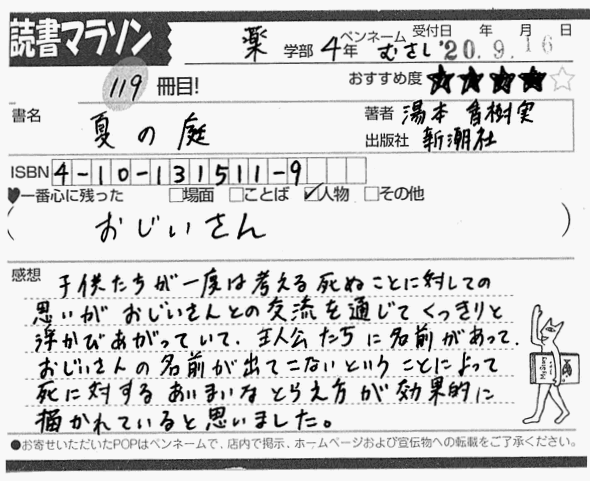 読書マラソン
薬 学部 4年 ペンネーム むさし 受付日 '20.9.16 年 月 日
119 冊目! おすすめ度 ★★★★☆
書名 夏の庭 著者 湯本香樹実
出版社 新潮社
ISBN 4-10-131511-9
♥一番心に残った □場面 □ことば ☑人物 □その他
(おじいさん)
感想 子供たちが一度は考える死ぬことに対しての
思いがおじいさんとの交流を通じてくっきりと
浮かびあがっていて、主人公たちに名前があって、
おじいさんの名前が出てこないということによって
死に対するあいまいなとらえ方が効果的に
描かれていると思いました。
●お寄せいただいたPOPはペンネームで、店内で掲示、ホームページおよび宣伝物への転載をご了承ください。